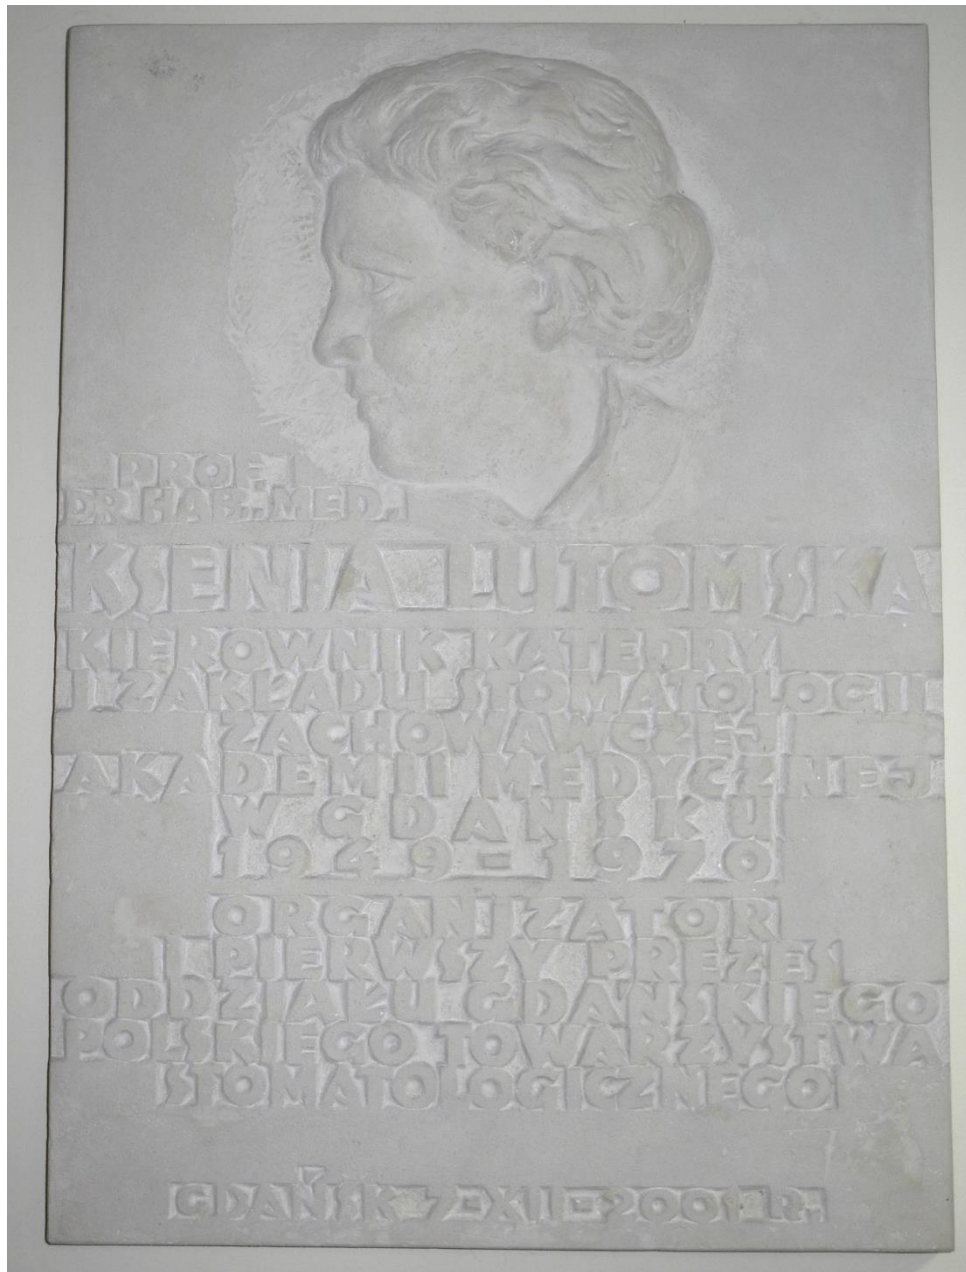 PROF.
DR HAB. MED.
KSENIA LUTOMSKA
KIEROWNIK KATEDRY
I ZAKŁADU STOMATOLOGII
ZACHOWAWCZEJ
AKADEMII MEDYCZNEJ
W GDAŃSKU
1949-1970
ORGANIZATOR
I PIERWSZY PREZES
ODDZIAŁU GDAŃSKIEGO
POLSKIEGO TOWARZYSTWA
STOMATOLOGICZNEGO
GDAŃSK 7-XII-2001 R.